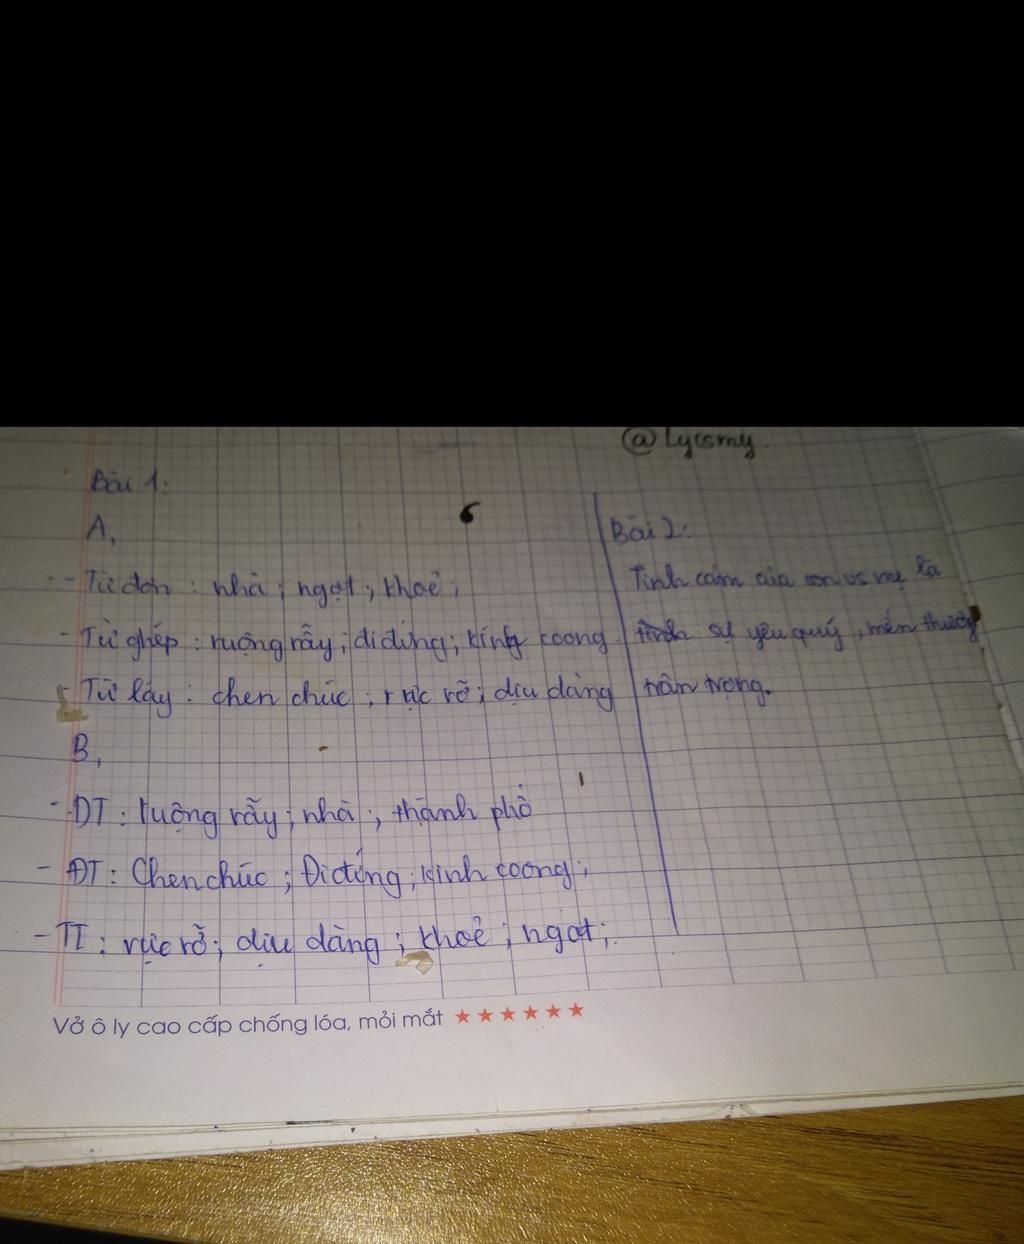 @ Lycsmy.
Bài 1:
A,
- Từ đơn : nhà ; ngọt ; khoẻ ;
- Từ ghép : ruộng rẫy ; đi đứng ; kính coong
- Từ láy : chen chúc ; rực rỡ ; dịu dàng
B,
- DT : ruộng rẫy ; nhà ; thành phố
- ĐT : Chen chúc ; Đi đứng ; kính coong ;
- TT : rực rỡ ; dịu dàng ; khoẻ ; ngọt ;
Bài 2:
Tình cảm của con vs mẹ là
sự yêu quý , mến thương
trân trọng.
Vở ô ly cao cấp chống lóa, mỏi mắt ★★★★★★